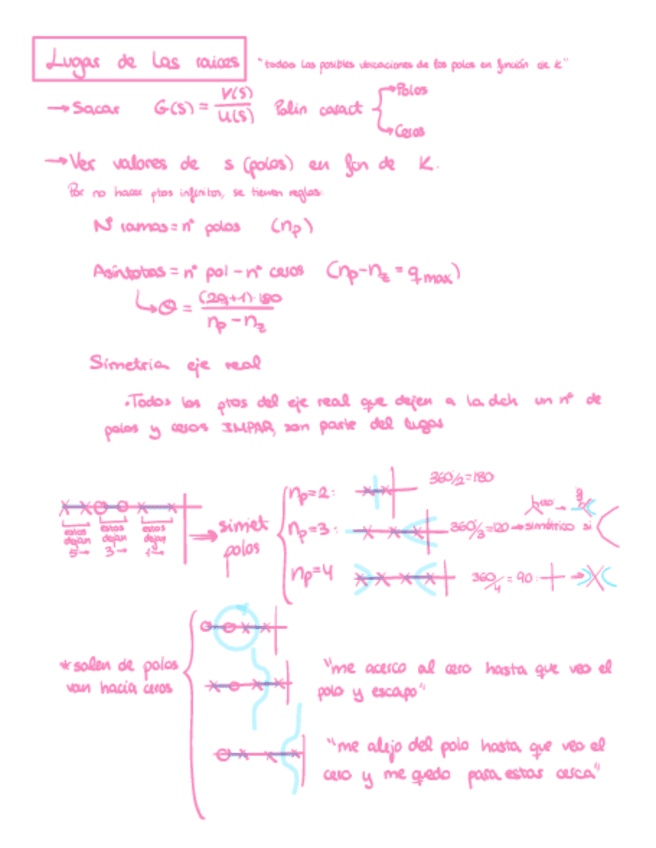 Lugar de las raices "todas las posibles ubicaciones de los polos en función de k"
→ Sacar G(s) = V(s)/U(s) Polin caract → Polos → Ceros
→ Ver valores de s (polos) en fon de K.
Por no hacer ptos infinitos, se tienen reglas:
Nº ramas = nº polos (np)
Asíntotas = nº pol - nº ceros (np - nz = qmax)
↳ θ = (2q+1)·180 / np - nz
Simetria eje real
·Todos los ptos del eje real que dejen a la dch un nº de
polos y ceros IMPAR, son parte del lugar
estos dejan 5→ estos dejan 3→ estos dejan 1→
⇒ simet polos
np=2: 360/2=180
np=3: 360/3=120 → simétrico si
np=4 360/4 = 90:
* salen de polos
van hacia ceros
"me acerco al cero hasta que veo el
polo y escapo"
"me alejo del polo hasta que veo el
cero y me quedo para estar cerca"